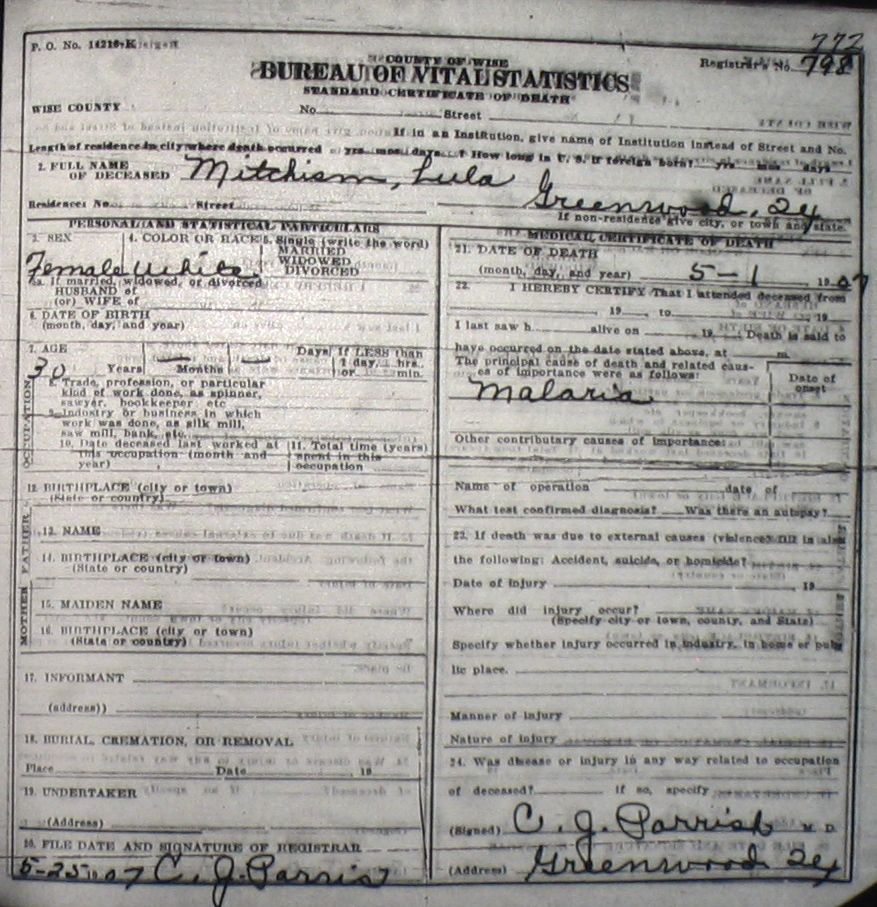 P. O. No. 14216-K
772
COUNTY OF WISE
Registrar's No. 798
BUREAU OF VITAL STATISTICS
STANDARD CERTIFICATE OF DEATH
WISE COUNTY No. Street
If in an Institution, give name of Institution instead of Street and No.
Length of residence in city where death occurred yrs. mos. days. ? How long in U. S. if foreign born? yrs mos days
2. FULL NAME OF DECEASED Mitchism, Lula
Residence: No. Street Greenwood,
If non-residence give city, or town and state.
PERSONAL AND STATISTICAL PARTICULARS
3. SEX 4. COLOR OR RACE 5. Single (write the word)
MARRIED
WIDOWED
DIVORCED
Female White
5a. If married, widowed, or divorced
HUSBAND of
(or) WIFE of
6. DATE OF BIRTH
(month, day, and year)
7. AGE Days If LESS than
30 Years Months 1 day, hrs.
or min.
OCCUPATION
8. Trade, profession, or particular
kind of work done, as spinner,
sawyer, bookkeeper, etc
9. Industry or business in which
work was done, as silk mill,
saw mill, bank, etc.
10. Date deceased last worked at
this occupation (month and
year)
11. Total time (years)
spent in this
occupation
12. BIRTHPLACE (city or town)
(State or country)
FATHER
13. NAME
14. BIRTHPLACE (city or town)
(State or country)
MOTHER
15. MAIDEN NAME
16. BIRTHPLACE (city or town)
(State or country)
17. INFORMANT
(address))
18. BURIAL, CREMATION, OR REMOVAL
Place Date , 19
19. UNDERTAKER
(Address)
20. FILE DATE AND SIGNATURE OF REGISTRAR
5-25 1907 C. J. Parris
MEDICAL CERTIFICATE OF DEATH
21. DATE OF DEATH
(month, day, and year) 5-1 1907
22. I HEREBY CERTIFY That I attended deceased from
, 19 , to , 19
I last saw h alive on 19 . Death is said to
have occurred on the date stated above, at m.
The principal cause of death and related causes of importance were as follows:
Date of onset
Malaria
Other contributory causes of importance:
Name of operation date of
What test confirmed diagnosis? Was there an autopay?
23. If death was due to external causes (violence) fill in also
the following: Accident, suicide, or homicide?
Date of injury 19
Where did injury occur?
(Specify city or town, county, and State)
Specify whether injury occurred in industry, in home or pub-
lic place.
Manner of injury
Nature of injury
24. Was disease or injury in any way related to occupation
of deceased? if so, specify
(Signed) C. J. Parrish M. D.
(Address) Greenwood